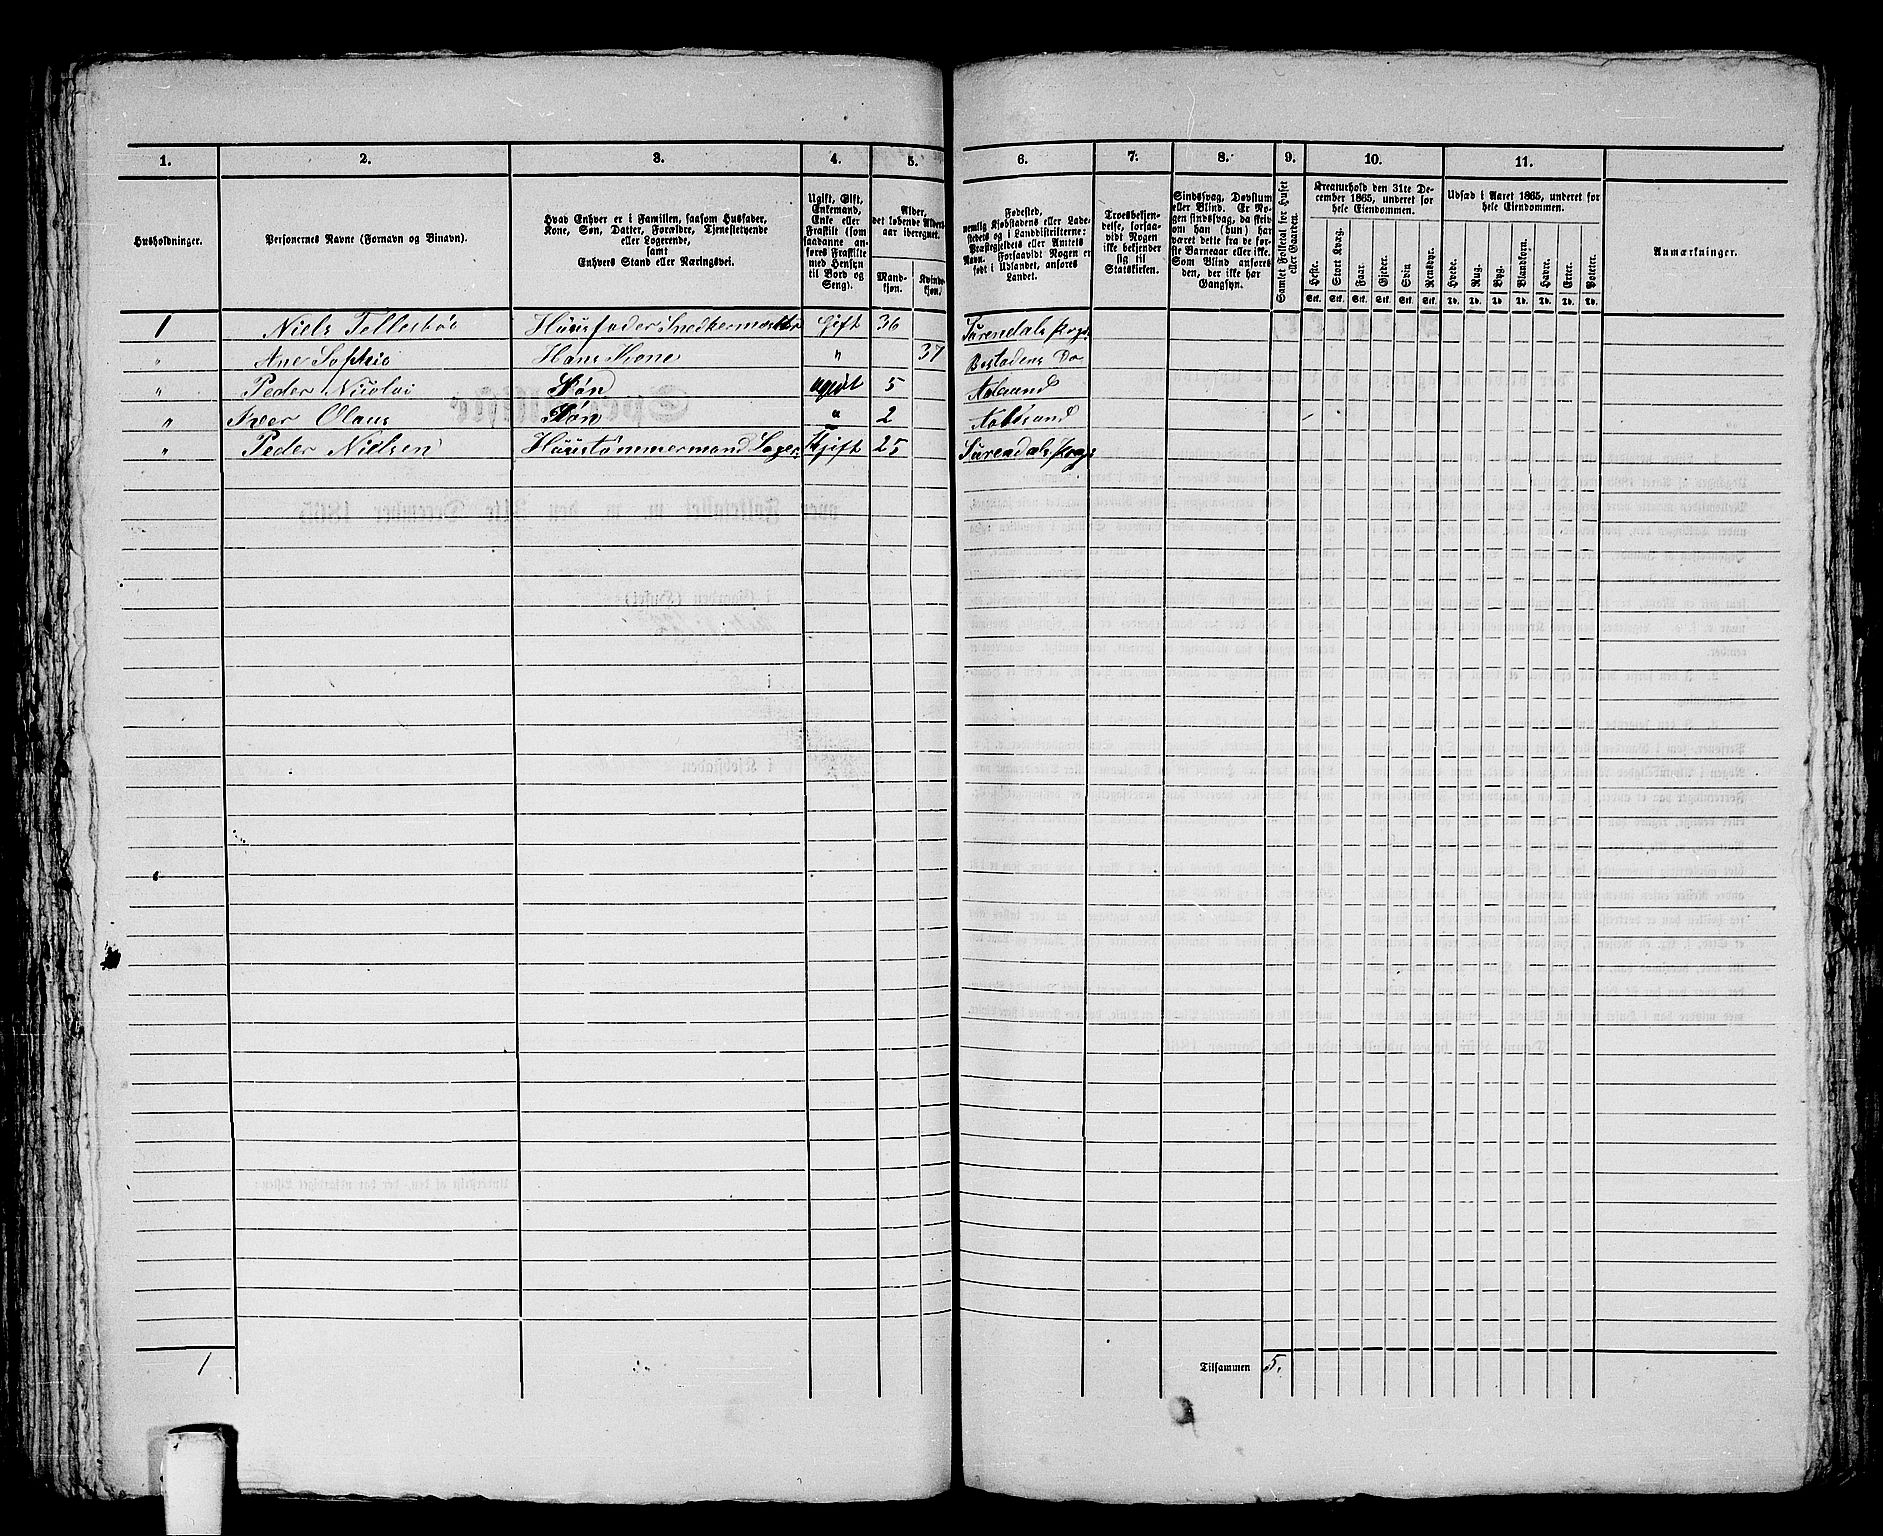 1. 2. 3. 4. 5. 6. 7. 8. 9. 10. 11.
Husholdninger.
Personernes Navne (Fornavn og Binavn).
Hvad Enhver er i Familien, saasom Husfader,
Kone, Søn, Datter, Forældre, Tjenestetyende
eller Logerende,
samt
Enhvers Stand eller Næringsvei.
Ugift, Gift,
Enkemand,
Enke eller
Fraskilt (som
saadanne an-
føres Fraskilte
med Hensyn
til Bord og
Seng).
Alder,
det løbende Alders-
aar iberegnet.
Mand-
kjøn.
Kvinde-
kjøn.
Fødested,
nemlig Kjøbstadens eller Lade-
stedets og i Landdistrikterne:
Præstegjeldets eller Amtets
Navn. Forsaavidt Nogen er
født i Udlandet, anføres
Landet.
Troesbekjen-
delse, forsaa-
vidt Nogen
ikke bekjender
sig til
Statskirken.
Sindssvag, Døvstum
eller Blind. Er No-
gen sindssvag, da skriv
om han (hun) har
været dette fra de før-
ste Barneaar eller ikke.
Som Blind anføres
den, der ikke har
Gangsyn.
Samlet Folketal for Huset
eller Gaarden.
Kreaturhold den 31te De-
cember 1865, underet for
hele Eiendommen.
Heste.
Stort Kvæg.
Faar.
Gjeder.
Svin
Rensdyr.
Stk. Stk. Stk. Stk. Stk. Stk.
Udsæd i Aaret 1865, underet for
hele Eiendommen.
Hvede.
Rug.
Byg.
Blandkorn.
Havre.
Erter.
Poteter.
Td. Td. Td. Td. Td. Td. Td.
Anmærkninger.
1 Niels Gift 36
" Ane Sophie Hans Kone " 37
" Peder Nicolai Søn ugivt 5
" Iver Olaus Søn " 2
" Peder Nielsen Huustømmermand Loger: Gift 25
1 Tilsammen 5.